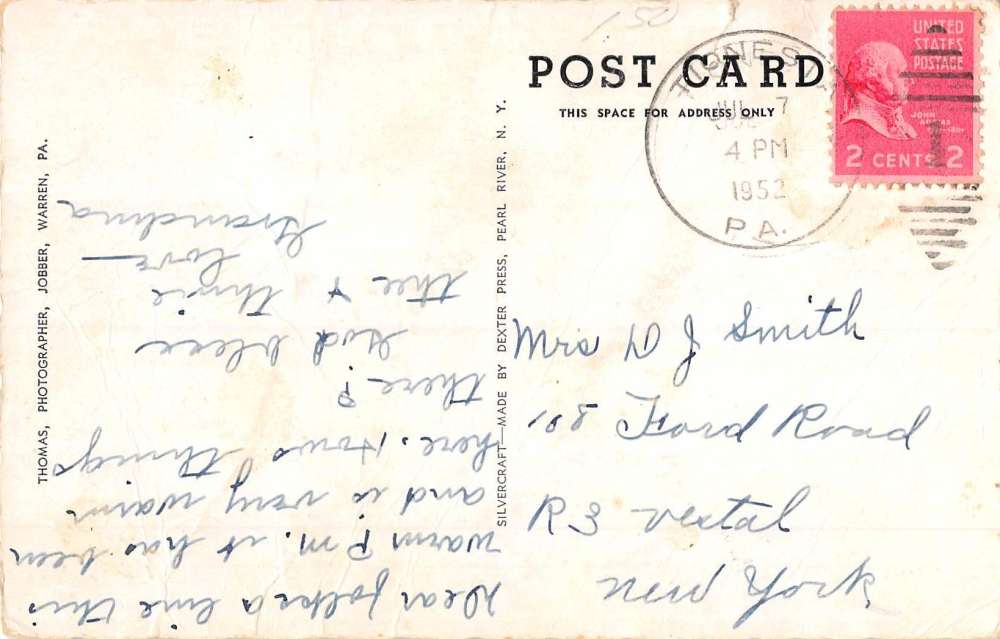 POST CARD
THIS SPACE FOR ADDRESS ONLY
TIONESTA
JUL 7
4 PM
1952
PA.
UNITED
STATES
POSTAGE
JOHN
ADAMS
2 CENTS 2
Mrs D J Smith
Ford Road
Vestal
New York
SILVERCRAFT—MADE BY DEXTER PRESS, PEARL RIVER, N. Y.
THOMAS, PHOTOGRAPHER, JOBBER, WARREN, PA.
Dear folks a line this
warm P.M. it has been
and is very warm
here. Hows things
there?
God bless
thee & thine
love—
Grandma